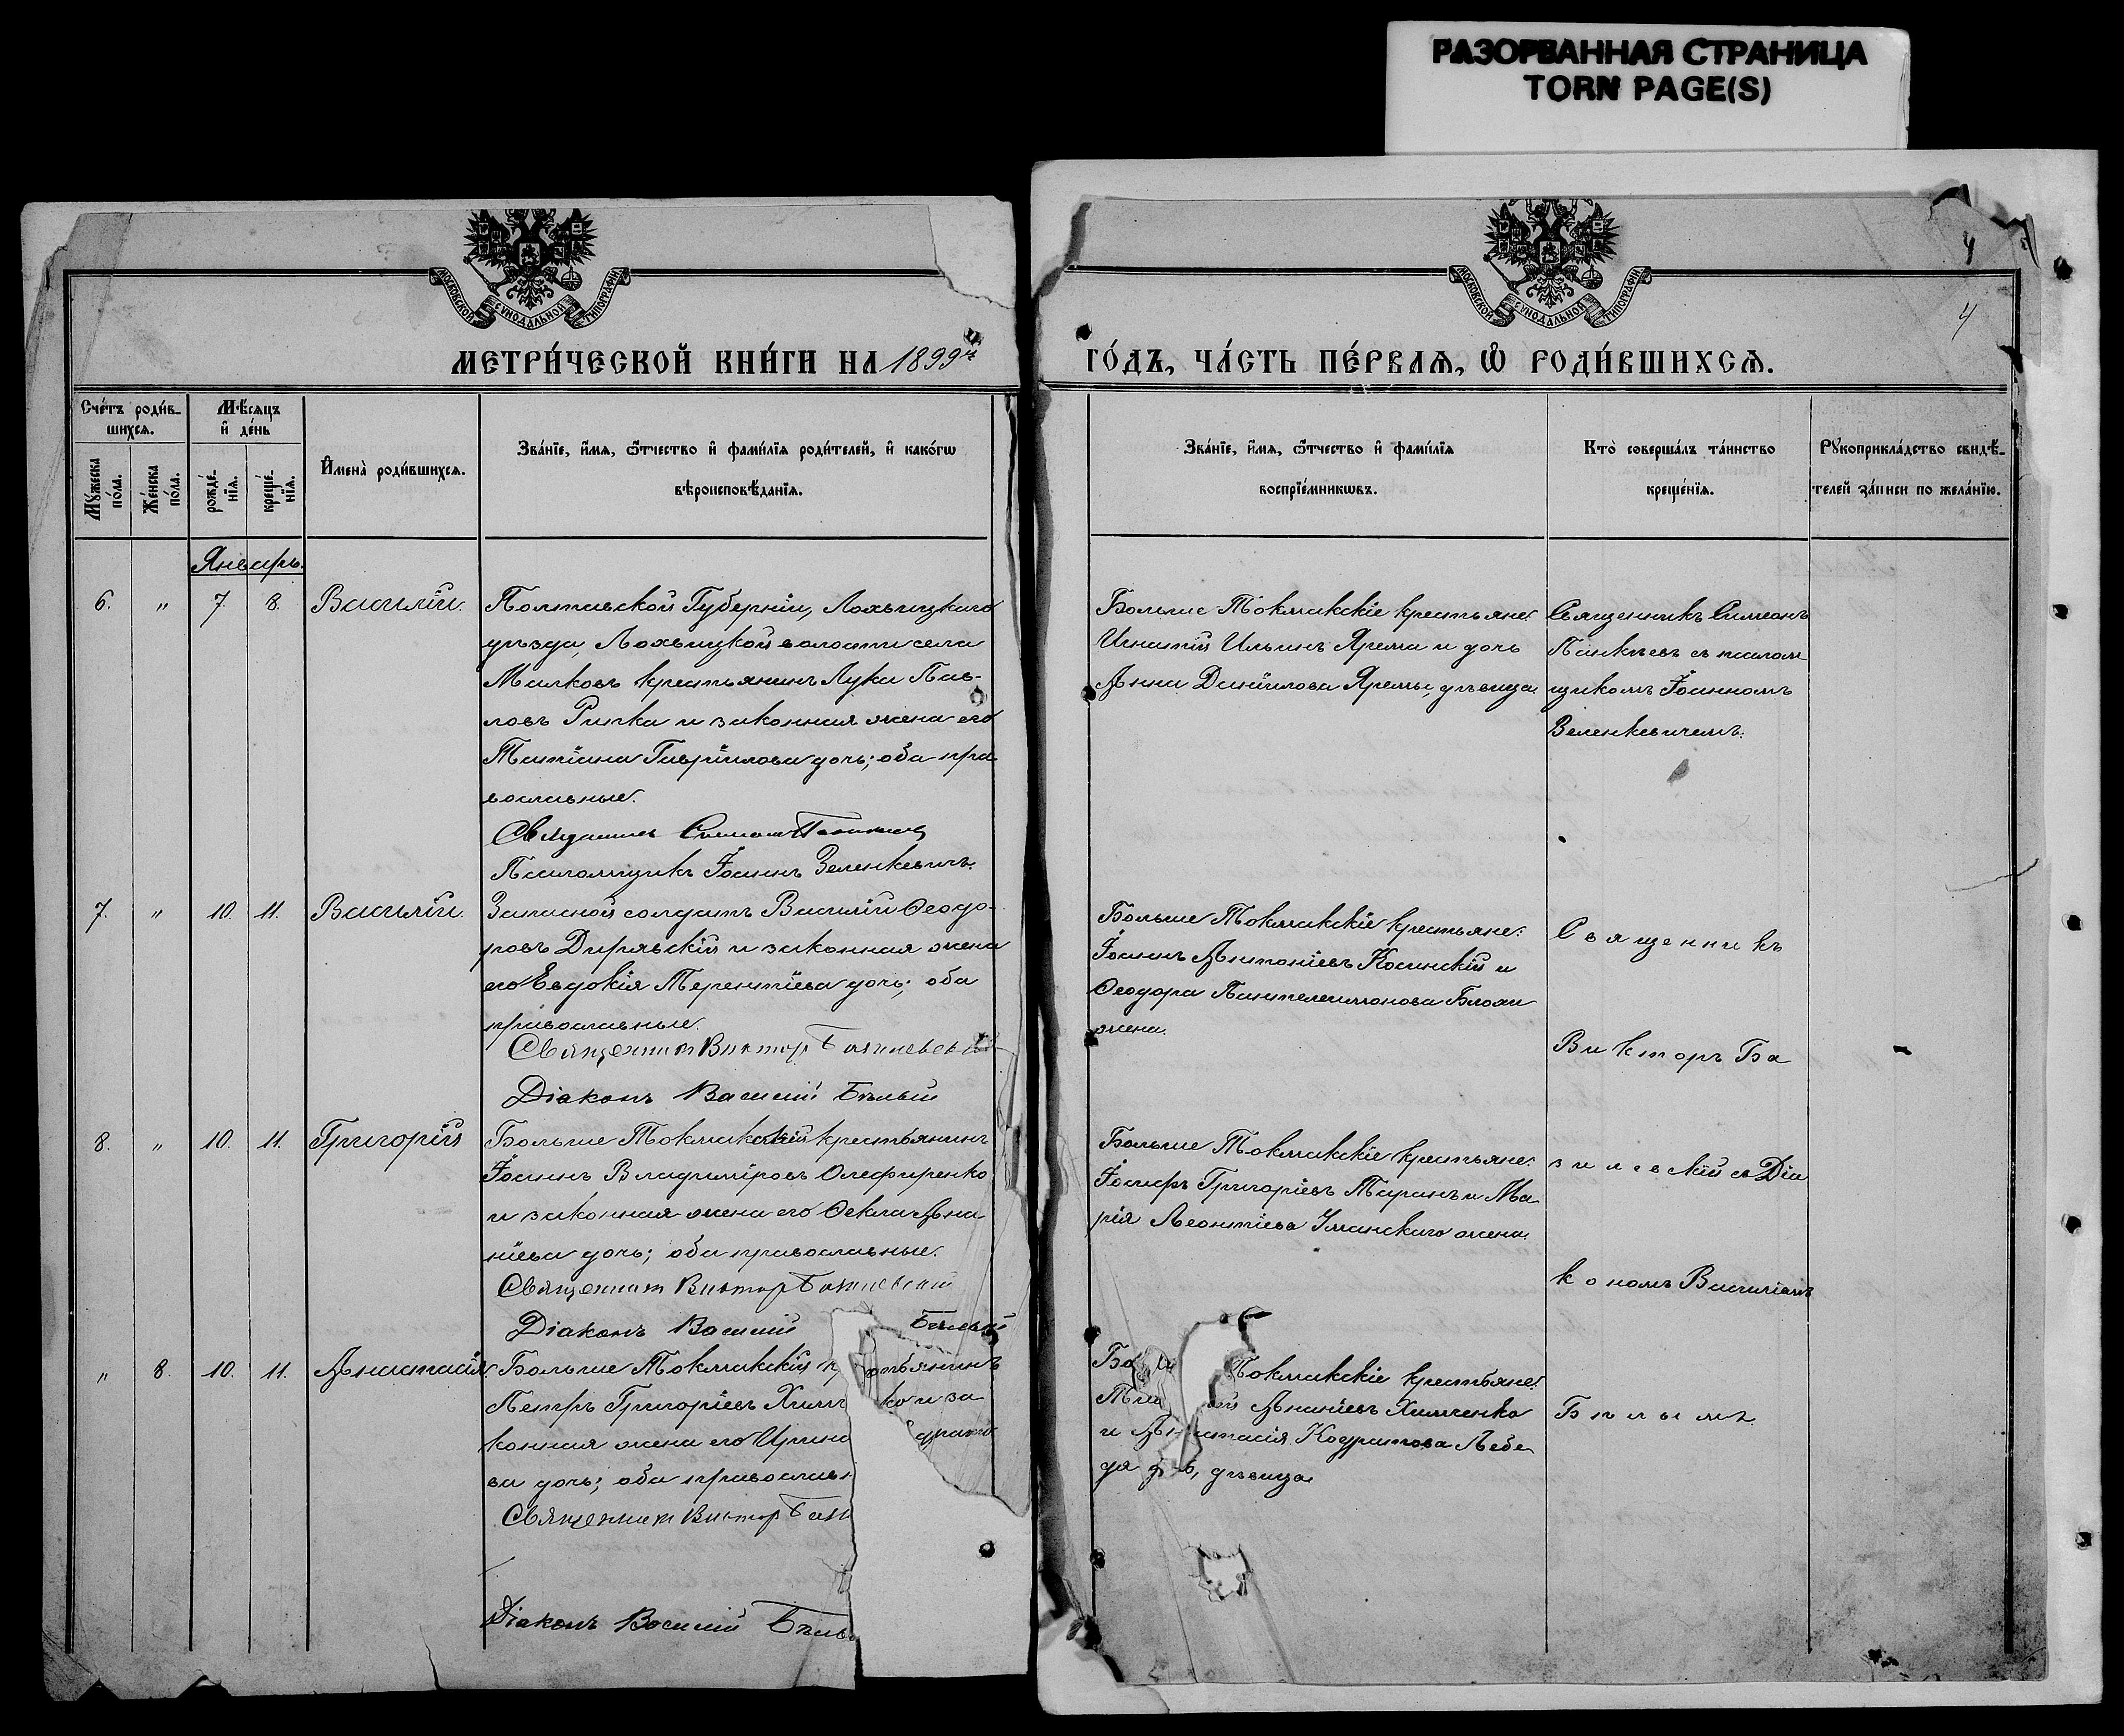 РАЗОРВАННАЯ СТРАНИЦА
TORN PAGE(S)
МОСКОВСКОЙ СѴНОДАЛЬНОЙ ТИПОГРАФІИ
МОСКОВСКОЙ СѴНОДАЛЬНОЙ ТИПОГРАФІИ
4
4
МЕТРИ́ЧЕСКОЙ КНИ́ГИ НА 1899й
ГО́ДЪ, ЧА́СТЬ ПЕ́РВАѦ, Ѡ҆ РОДИ́ВШИХСѦ.
Сче́тъ роди́в-
шихсѧ.
Мꙋ́жеска по́ла.
Же́нска по́ла.
Мѣ́сѧцъ
и҆ де́нь
рожде́-
нїѧ.
креще́-
нїѧ.
И҆мена̀ роди́вшихсѧ.
Зва́нїе, и҆́мѧ, ѻ҆́тчество и҆ фами́лїѧ роди́телей, и҆ како́гѡ
вѣроисповѣ́данїѧ.
Зва́нїе, и҆́мѧ, ѻ҆́тчество и҆ фами́лїѧ
воспрїе́мникѡвъ.
Кто̀ соверша́лъ та́инство
креще́нїѧ.
Рꙋкоприкла́дство свидѣ́-
телей за́писи по жела́нїю.
Январь.
6. " 7. 8. Василій.
Полтавской Губерніи, Лохвицкаго
уѣзда, Лохвицкой волости села
крестьянинъ Лука Пав-
ловъ и законная жена его
Татіана Гавріилова дочь; оба пра
вославные.
Священникъ Симеонъ
Псаломщикъ Іоаннъ Зеленкевичъ.
Больше Токмакскіе крестьяне:
Игнатій Ильинъ Ярема и дочь
Анна Даніилова Яремы, дѣвица
Священникъ Симеонъ
съ псалом
щикомъ Іоанномъ
Зеленкевичемъ.
7. " 10. 11. Василій.
Запасной солдатъ Василій Ѳеодо-
ровъ Дирявскій и законная жена
его Евдокія Терентіева дочь; оба
православные.
Священникъ Викторъ Базилевскій
Діаконъ Василій Бѣлый
Больше Токмакскіе крестьяне:
Іоаннъ Антоніевъ Косинскій и
Ѳеодора Пантелеимонова
жена.
Священникъ
Викторъ Ба
8. " 10. 11. Григорій
Больше Токмакскій крестьянинъ
Іоаннъ Владиміровъ Олефиренко
и законная жена его Ѳекла Ана
ніева дочь; оба православные.
Священникъ Викторъ Базилевскій
Діаконъ Василій Бѣлый
Больше Токмакскіе крестьяне:
Іосифъ Григоріевъ Таранъ и Ма
рія Леонтіева Уманскаго жена.
зилевскій съ Діа
кономъ Василіемъ
" 8. 10. 11. Анастасія.
Больше Токмакскій кр стьянинъ
Петръ Григоріевъ Хим ко и за
конная жена его Ирина
ва дочь; оба православн
Священникъ Викторъ Бази
Діаконъ Василій Бѣлы
Бо Токмакскіе крестьяне:
Ананіевъ Химченко
и Анастасія Кодратова Лебе
дя дѣвица
Бѣлымъ.